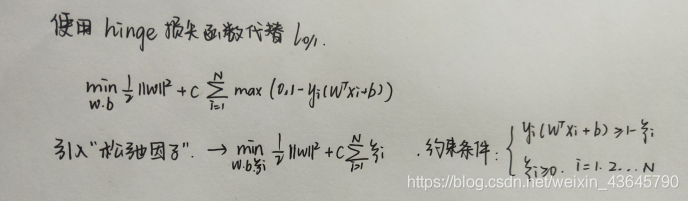 使用 hinge 损失函数代替 l₀/₁.
min w.b ½||w||² + C ∑ᵢ₌₁ᴺ max (0,1-yᵢ(wᵀxᵢ+b))
引入"松弛因子". → min w.b.ξᵢ ½||w||² + C ∑ᵢ₌₁ᴺ ξᵢ .约束条件: { yᵢ(wᵀxᵢ+b) ≥ 1-ξᵢ
ξᵢ≥0. i=1.2...N
https://blog.csdn.net/weixin_43645790